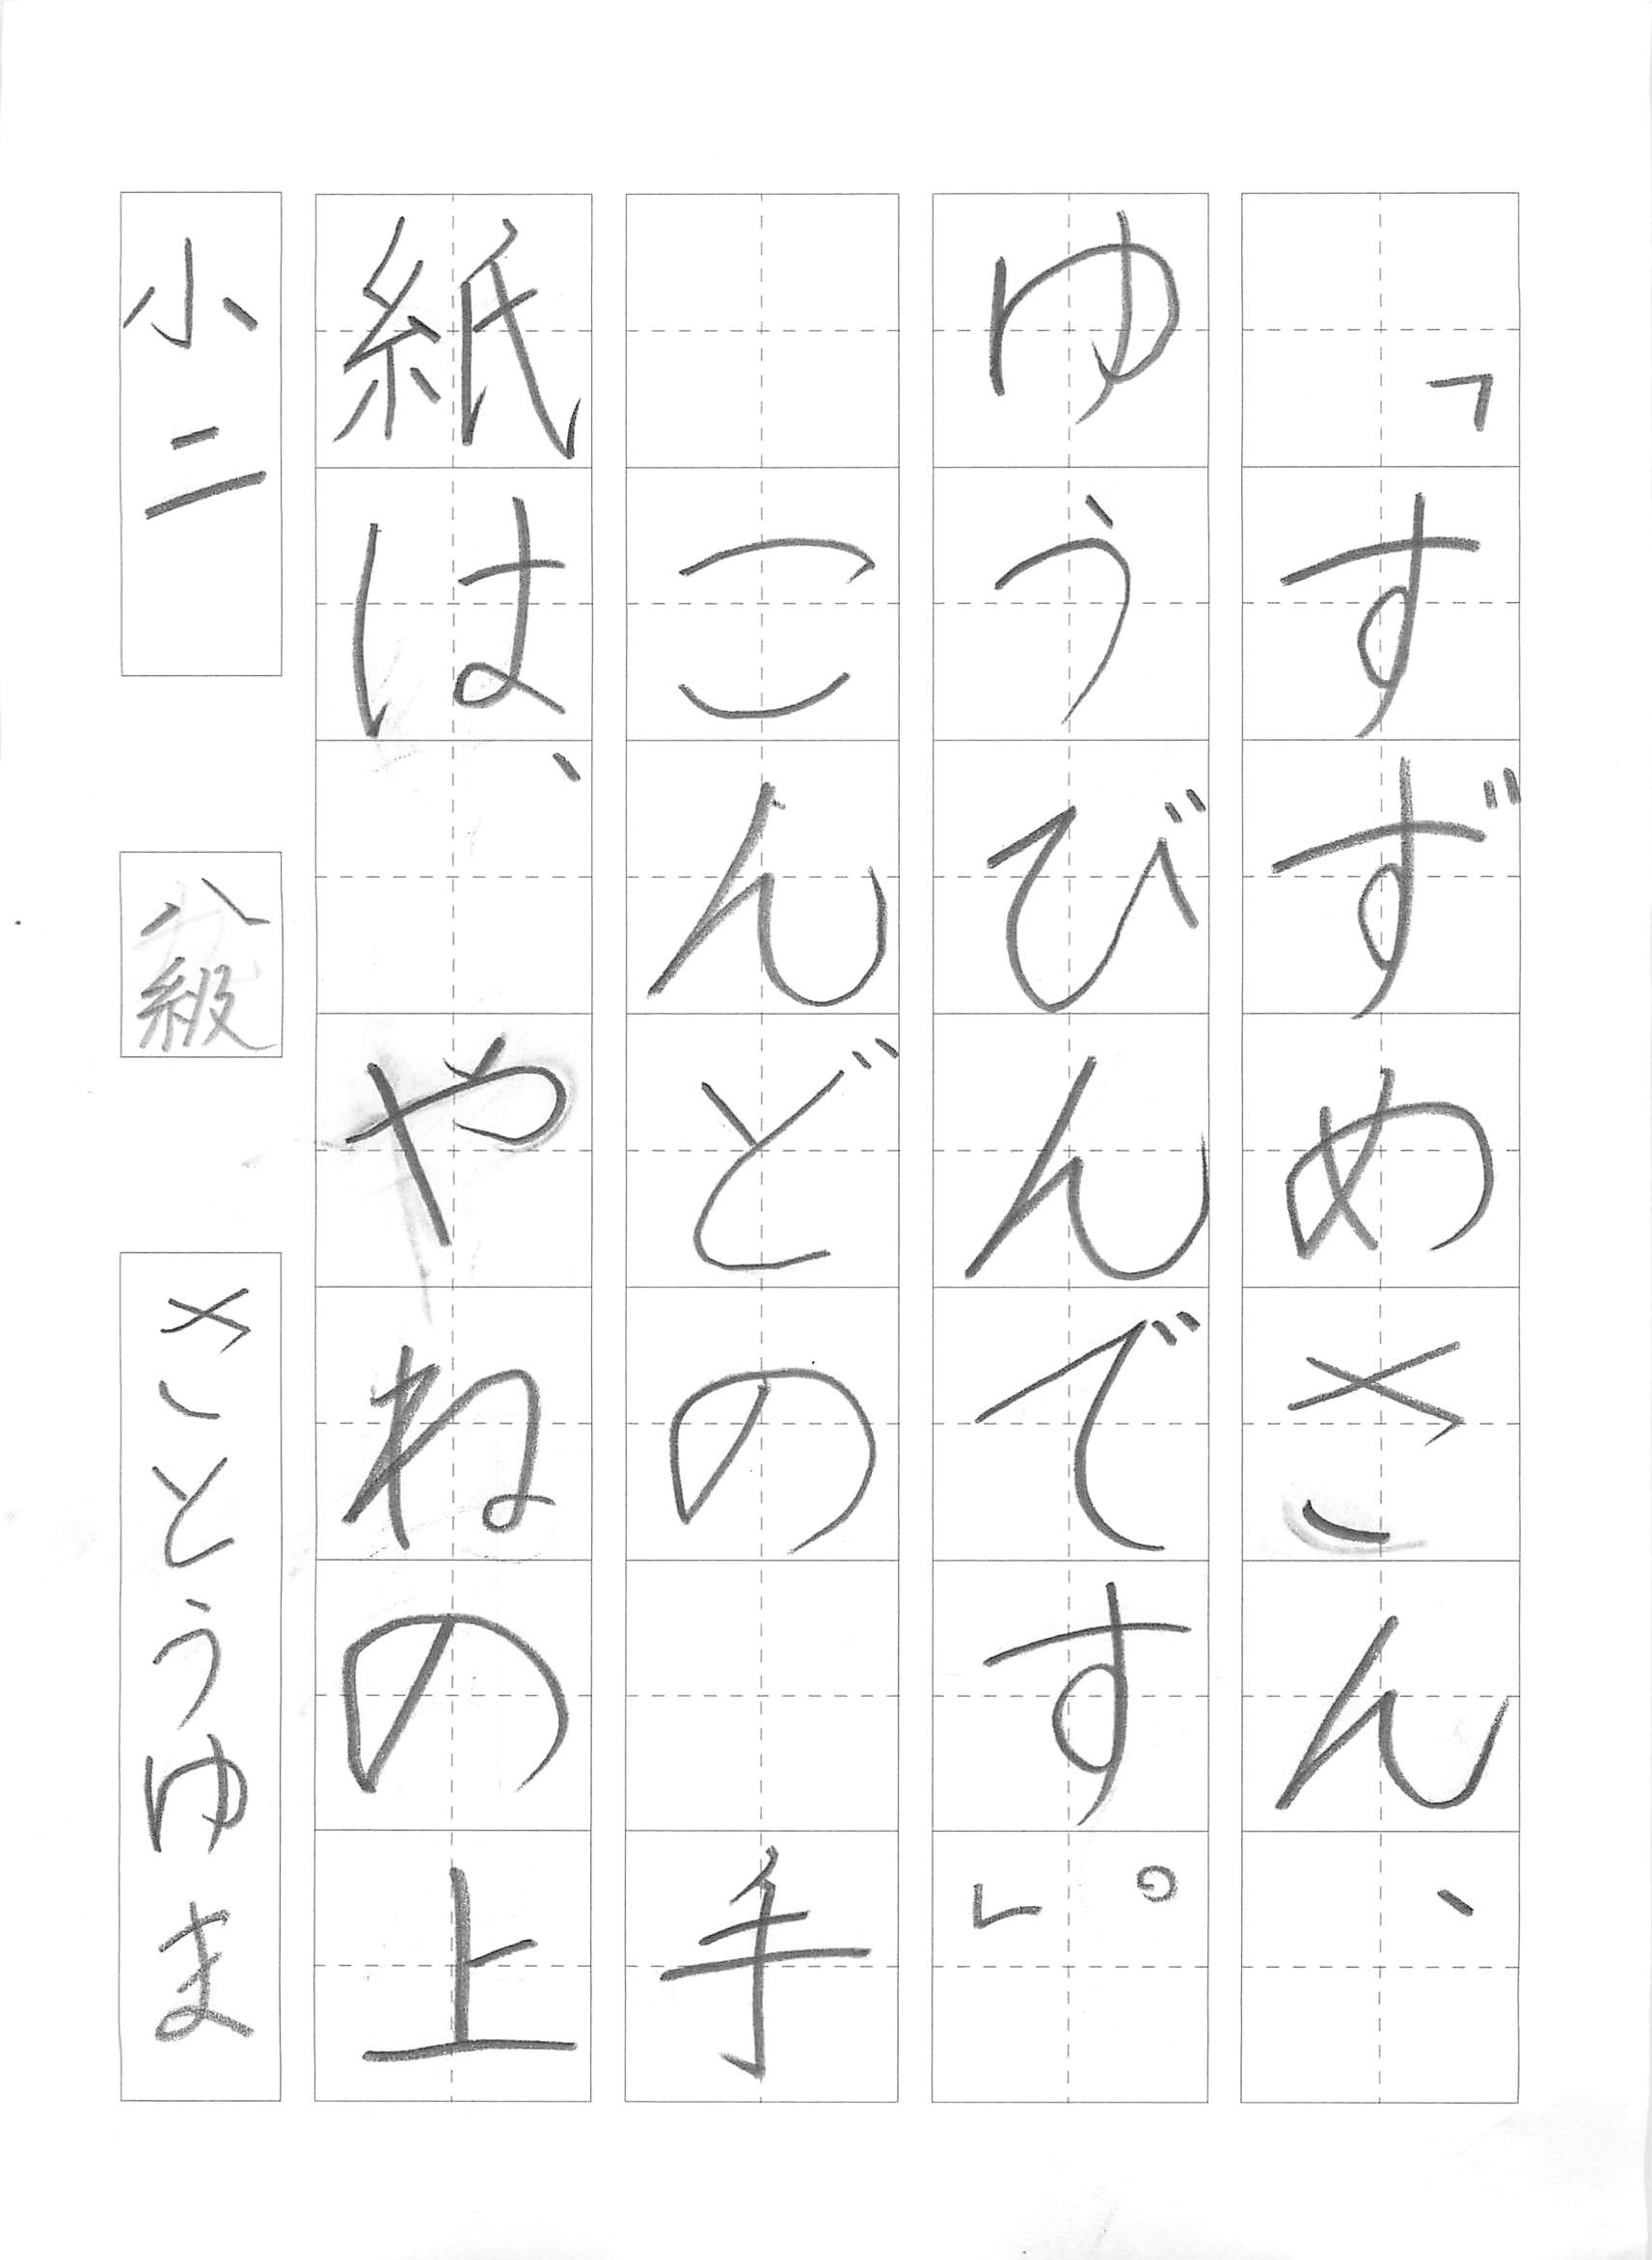 「すずめさん、
ゆうびんです。」
こんどの　手
紙は、　やねの上
小二
八級
さとうゆま